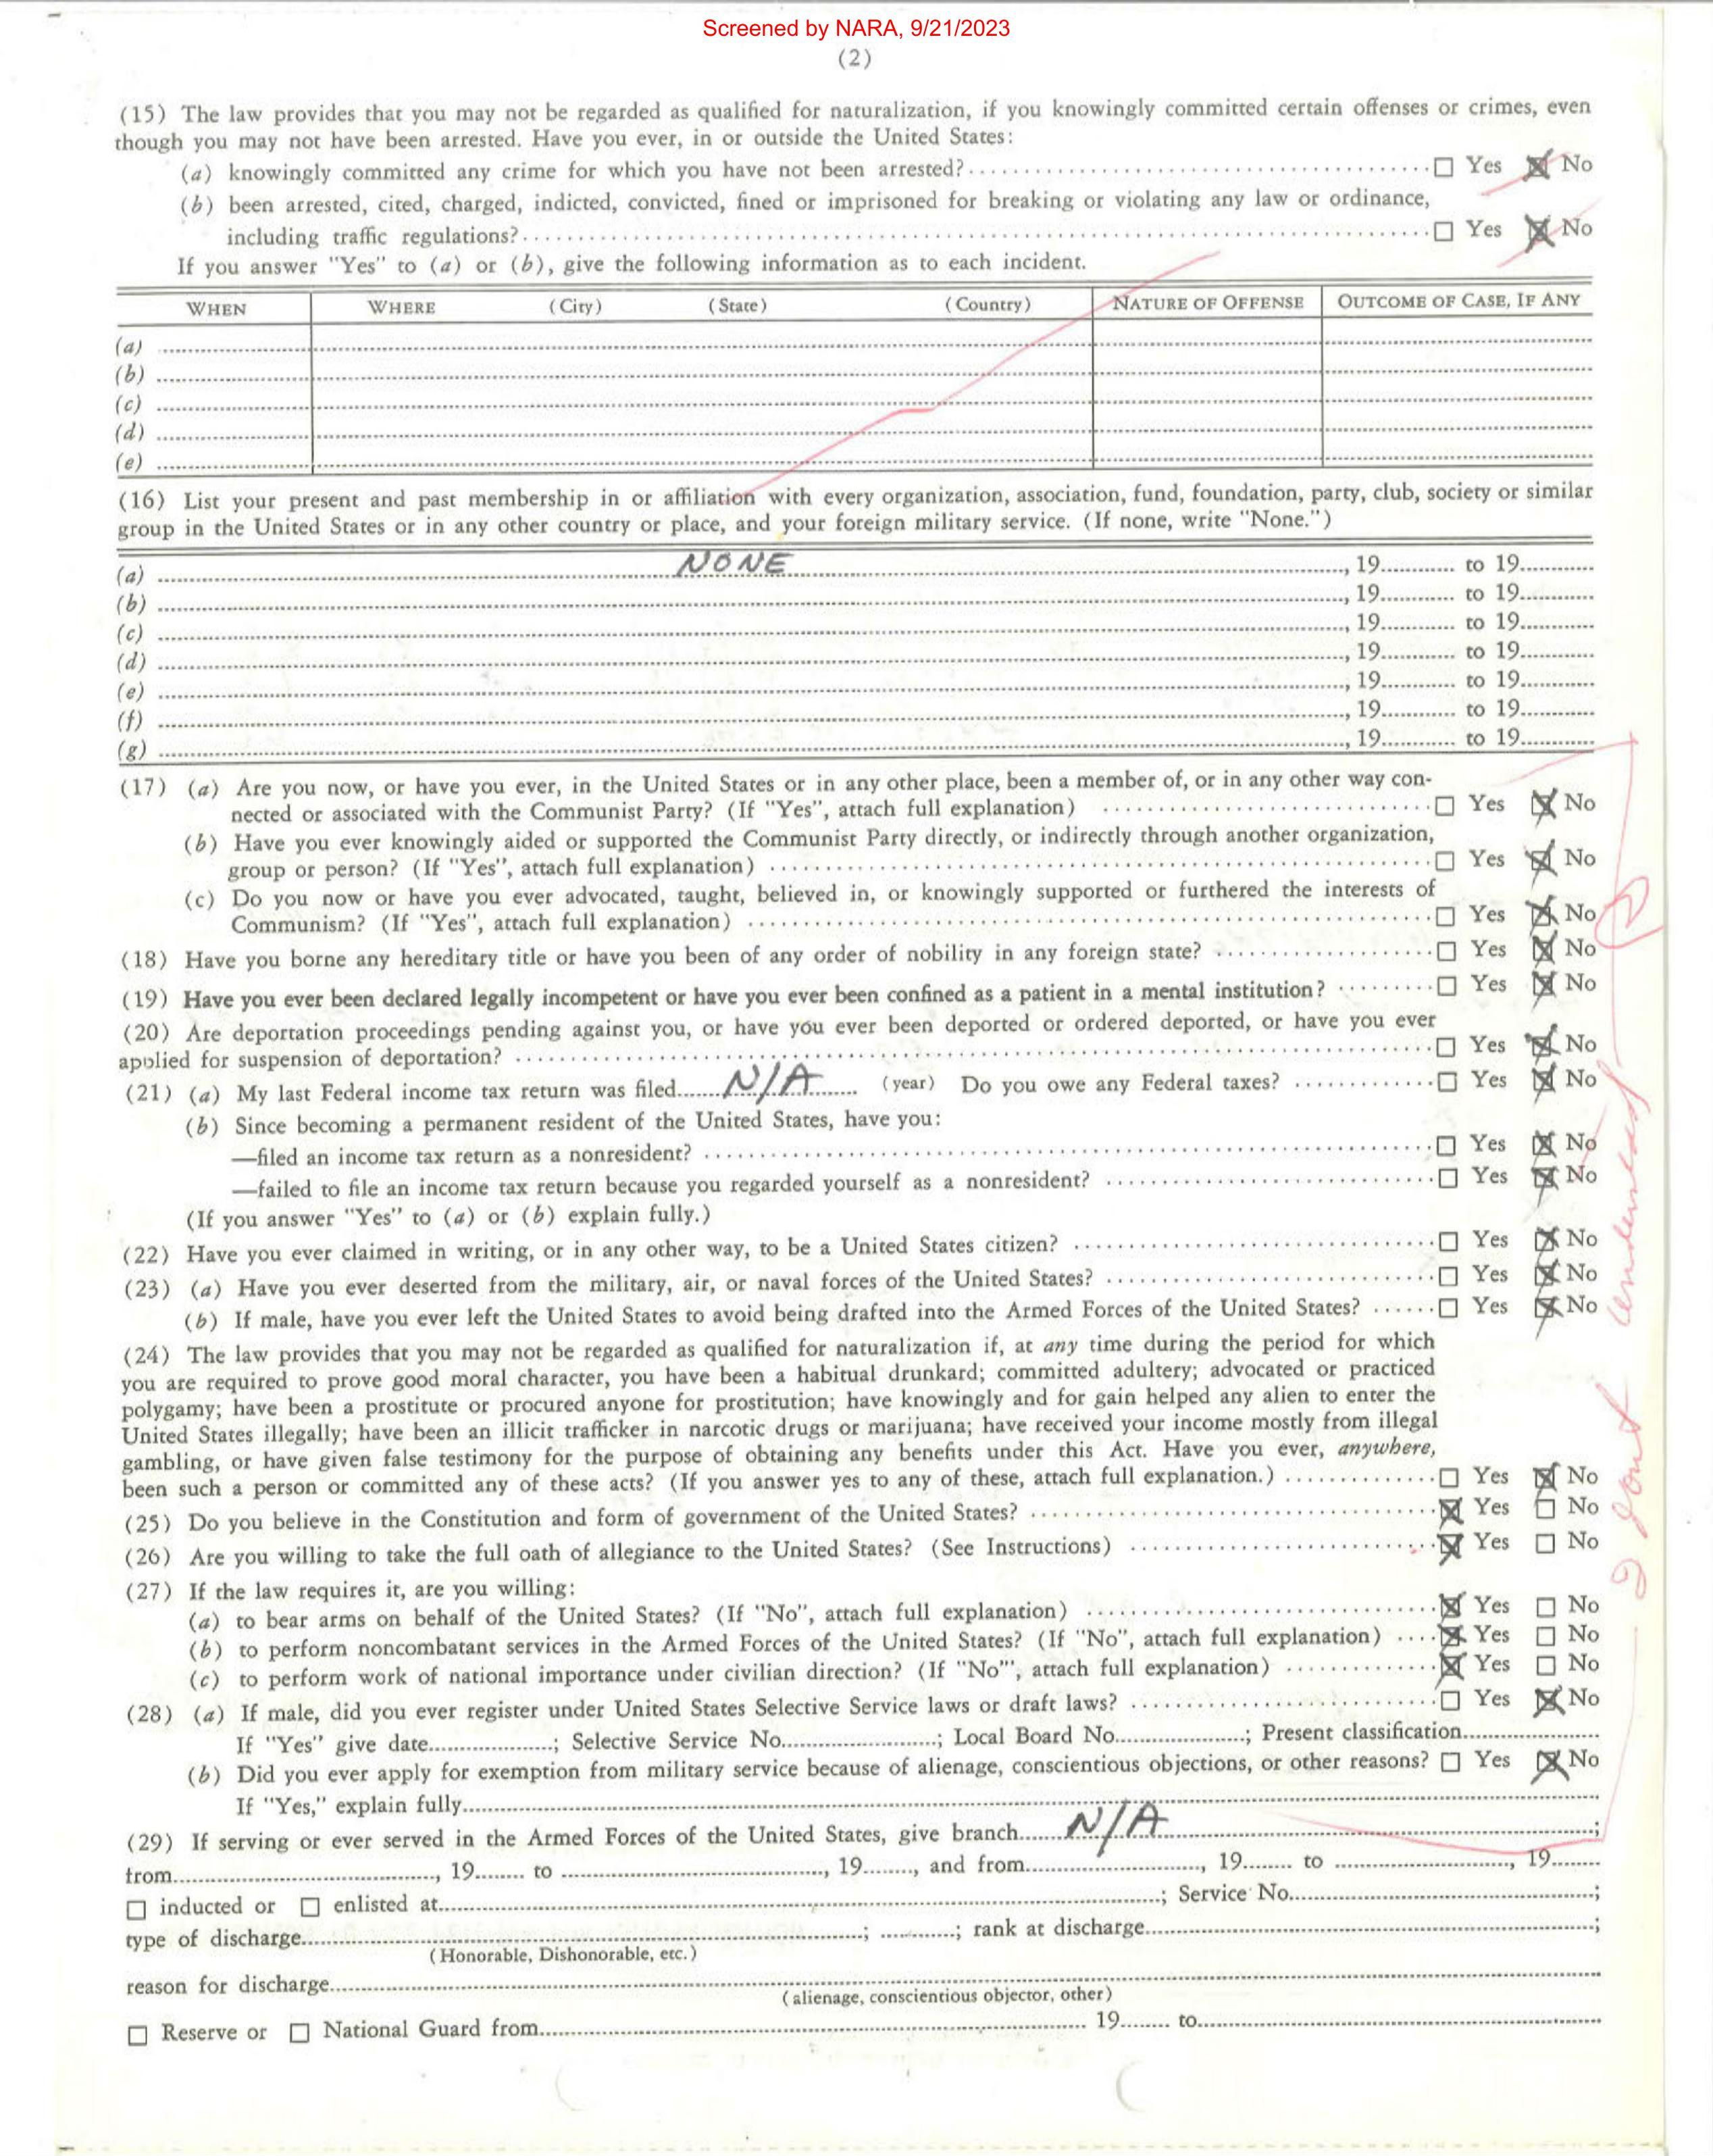 Screened by NARA, 9/21/2023
(2)
(15) The law provides that you may not be regarded as qualified for naturalization, if you knowingly committed certain offenses or crimes, even
though you may not have been arrested. Have you ever, in or outside the United States:
(a) knowingly committed any crime for which you have not been arrested? ☐ Yes ☒ No
(b) been arrested, cited, charged, indicted, convicted, fined or imprisoned for breaking or violating any law or ordinance,
including traffic regulations? ☐ Yes ☒ No
If you answer "Yes" to (a) or (b), give the following information as to each incident.
WHEN WHERE (City) (State) (Country) NATURE OF OFFENSE OUTCOME OF CASE, IF ANY
(a)
(b)
(c)
(d)
(e)
(16) List your present and past membership in or affiliation with every organization, association, fund, foundation, party, club, society or similar
group in the United States or in any other country or place, and your foreign military service. (If none, write "None.")
(a) NONE, 19 to 19
(b) , 19 to 19
(c) , 19 to 19
(d) , 19 to 19
(e) , 19 to 19
(f) , 19 to 19
(g) , 19 to 19
(17) (a) Are you now, or have you ever, in the United States or in any other place, been a member of, or in any other way con-
nected or associated with the Communist Party? (If "Yes", attach full explanation) ☐ Yes ☒ No
(b) Have you ever knowingly aided or supported the Communist Party directly, or indirectly through another organization,
group or person? (If "Yes", attach full explanation) ☐ Yes ☒ No
(c) Do you now or have you ever advocated, taught, believed in, or knowingly supported or furthered the interests of
Communism? (If "Yes", attach full explanation) ☐ Yes ☒ No
(18) Have you borne any hereditary title or have you been of any order of nobility in any foreign state? ☐ Yes ☒ No
(19) Have you ever been declared legally incompetent or have you ever been confined as a patient in a mental institution? ☐ Yes ☒ No
(20) Are deportation proceedings pending against you, or have you ever been deported or ordered deported, or have you ever
applied for suspension of deportation? ☐ Yes ☒ No
(21) (a) My last Federal income tax return was filed N/A (year) Do you owe any Federal taxes? ☐ Yes ☒ No
(b) Since becoming a permanent resident of the United States, have you:
—filed an income tax return as a nonresident? ☐ Yes ☒ No
—failed to file an income tax return because you regarded yourself as a nonresident? ☐ Yes ☒ No
(If you answer "Yes" to (a) or (b) explain fully.)
(22) Have you ever claimed in writing, or in any other way, to be a United States citizen? ☐ Yes ☒ No
(23) (a) Have you ever deserted from the military, air, or naval forces of the United States? ☐ Yes ☒ No
(b) If male, have you ever left the United States to avoid being drafted into the Armed Forces of the United States? ☐ Yes ☒ No
(24) The law provides that you may not be regarded as qualified for naturalization if, at any time during the period for which
you are required to prove good moral character, you have been a habitual drunkard; committed adultery; advocated or practiced
polygamy; have been a prostitute or procured anyone for prostitution; have knowingly and for gain helped any alien to enter the
United States illegally; have been an illicit trafficker in narcotic drugs or marijuana; have received your income mostly from illegal
gambling, or have given false testimony for the purpose of obtaining any benefits under this Act. Have you ever, anywhere,
been such a person or committed any of these acts? (If you answer yes to any of these, attach full explanation.) ☐ Yes ☒ No
(25) Do you believe in the Constitution and form of government of the United States? ☒ Yes ☐ No
(26) Are you willing to take the full oath of allegiance to the United States? (See Instructions) ☒ Yes ☐ No
(27) If the law requires it, are you willing:
(a) to bear arms on behalf of the United States? (If "No", attach full explanation) ☒ Yes ☐ No
(b) to perform noncombatant services in the Armed Forces of the United States? (If "No", attach full explanation) ☒ Yes ☐ No
(c) to perform work of national importance under civilian direction? (If "No"', attach full explanation) ☒ Yes ☐ No
(28) (a) If male, did you ever register under United States Selective Service laws or draft laws? ☐ Yes ☒ No
If "Yes" give date ; Selective Service No. ; Local Board No. ; Present classification
(b) Did you ever apply for exemption from military service because of alienage, conscientious objections, or other reasons? ☐ Yes ☒ No
If "Yes," explain fully
(29) If serving or ever served in the Armed Forces of the United States, give branch N/A ;
from , 19 to , 19 , and from , 19 to , 19
☐ inducted or ☐ enlisted at ; Service No. ;
type of discharge ; ; rank at discharge ;
(Honorable, Dishonorable, etc.)
reason for discharge
(alienage, conscientious objector, other)
☐ Reserve or ☐ National Guard from 19 to
I dont